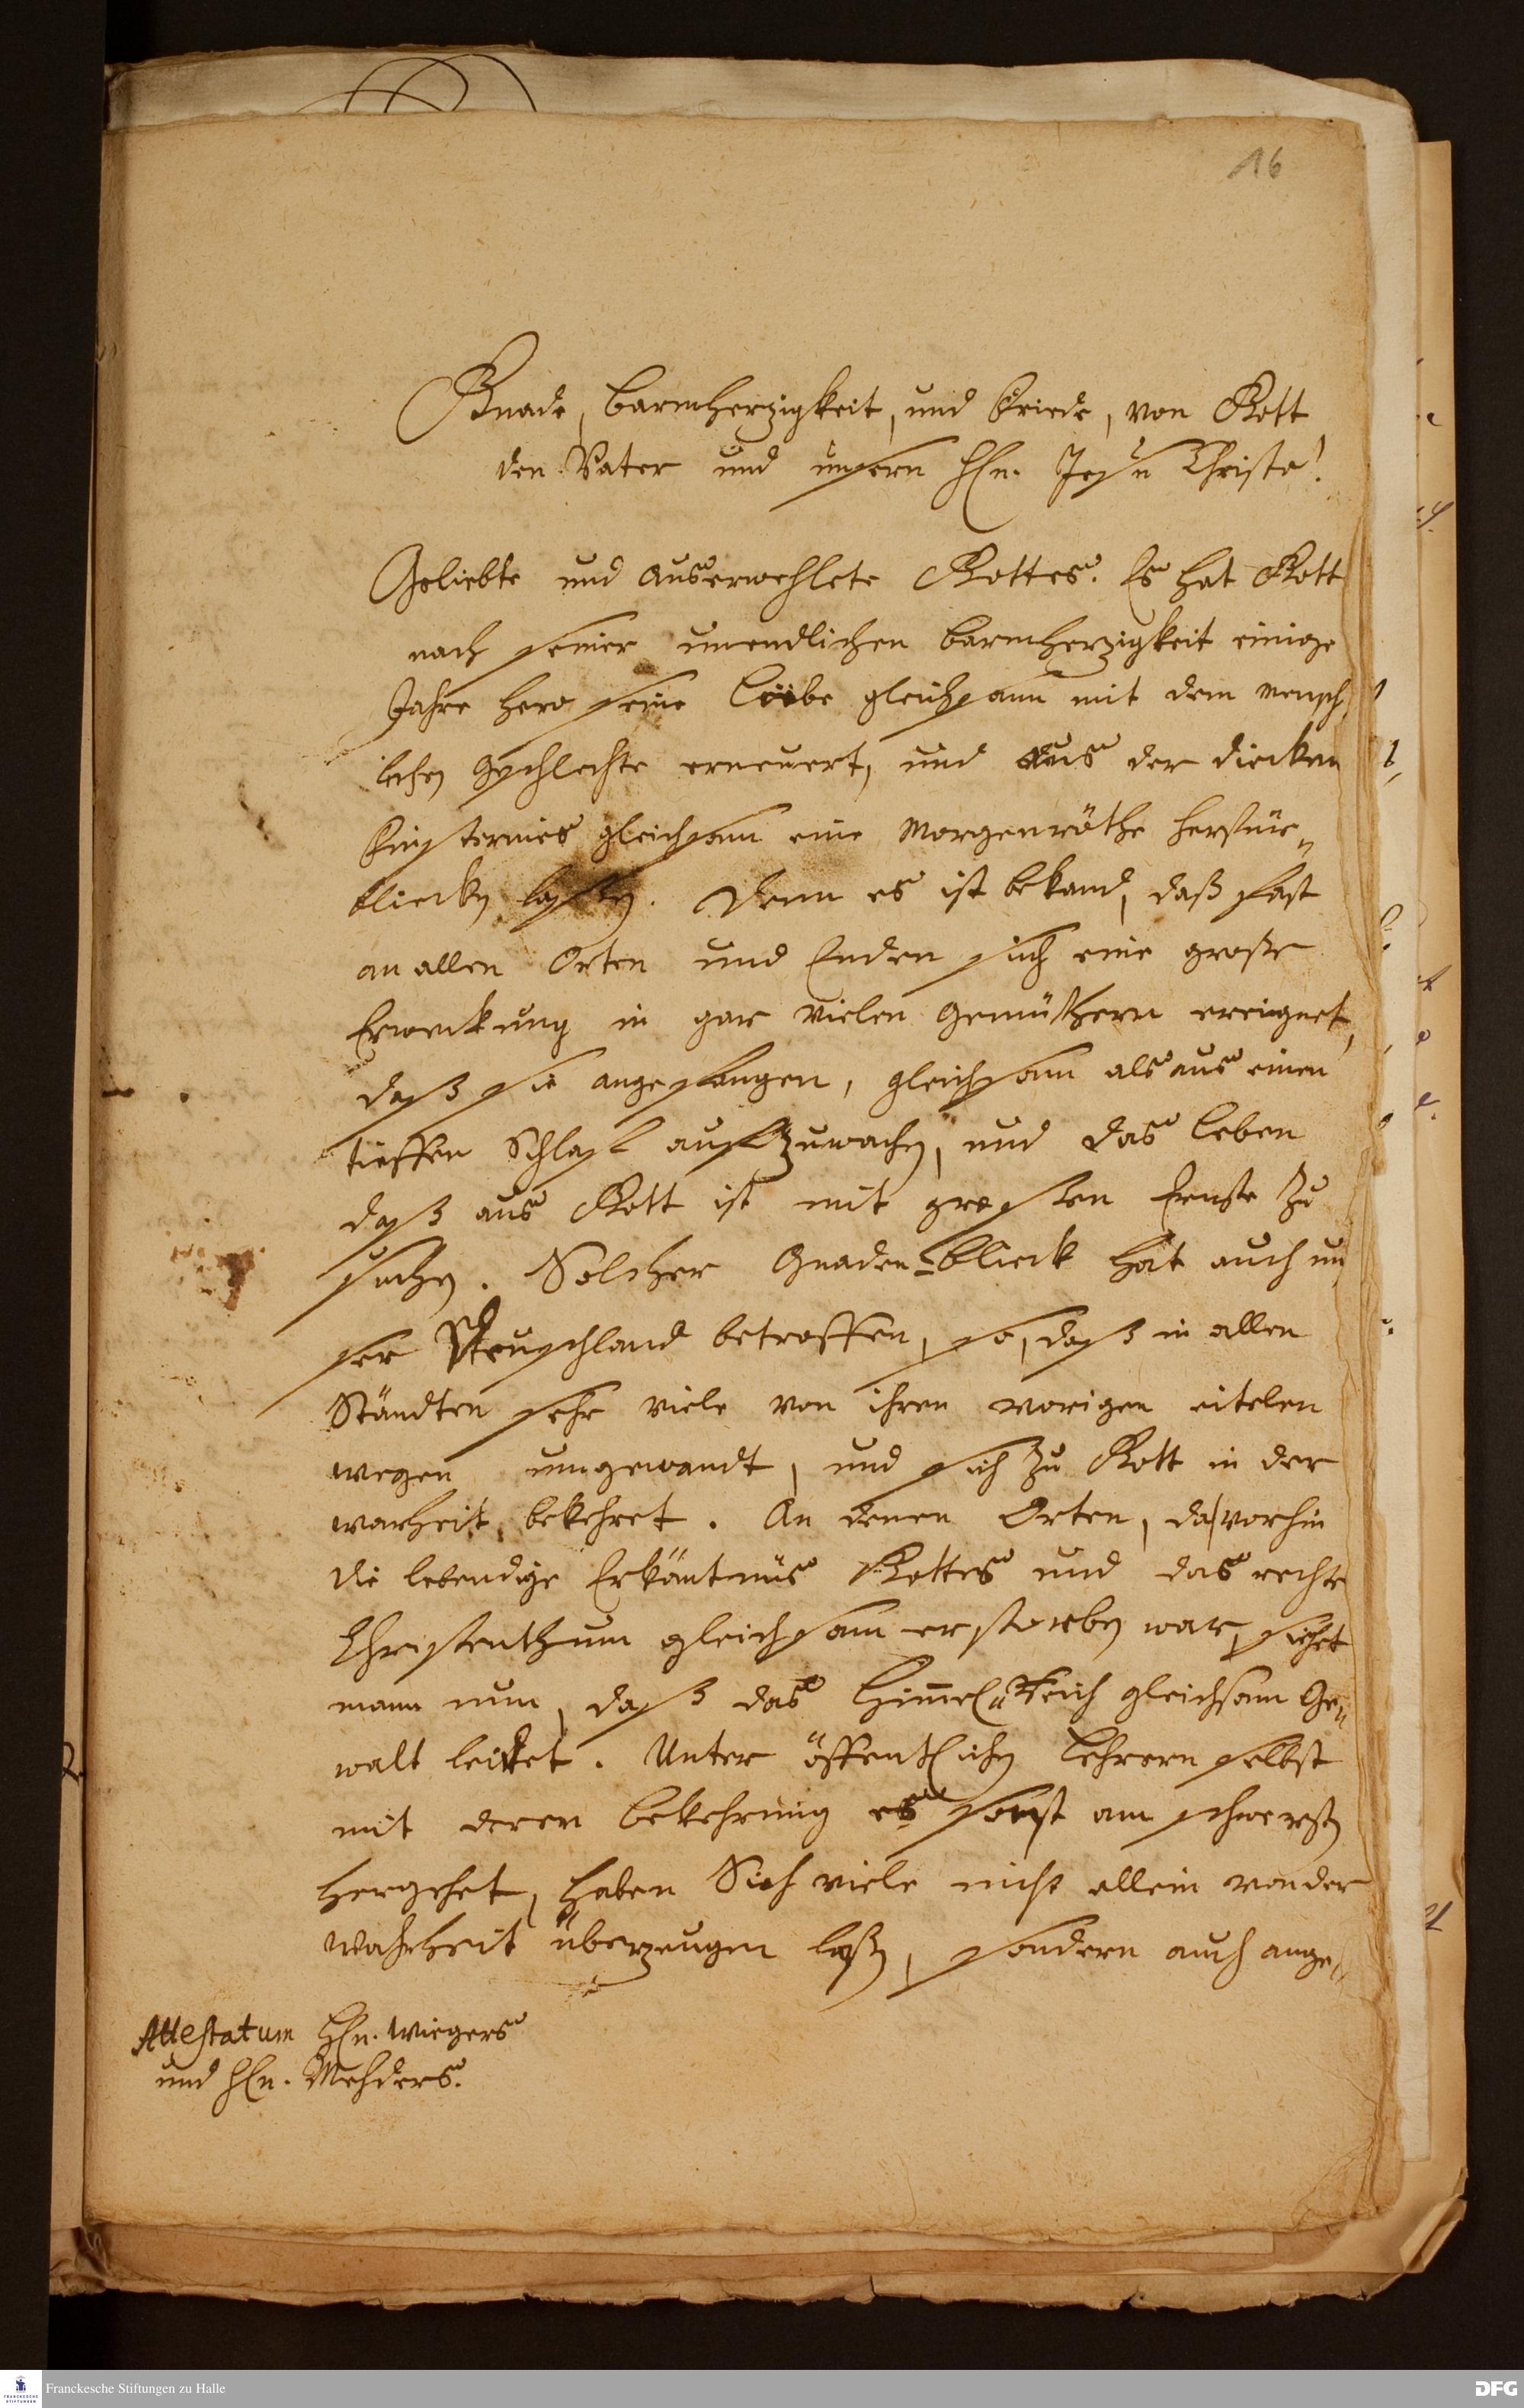 16
Gnade, Barmherzigkeit, und Friede, von Gott
den Vater und unsern Hn. Jesu Christo!
Geliebte und Auserwehlete Gottes. Es hat Gott
nach seiner unendlichen Barmherzigkeit einige
Jahre hero seine Liebe gleichsam mit dem mensch,
lichen Geschlechte erneuert, und aus der dicken
Finsternis gleichsam eine Morgenröthe herfür„
blicken lassen. Denn es ist bekand, daß fast
an allen Orten und Enden sich eine große
Erweckung in gar vielen Gemüthern ereignet,
daß sie angefangen, gleichsam als aus einen
tieffen Schlaf aufzuwachen, und das Leben
daß aus Gott ist mit großen Ernste zu
suchen. Solcher Gnaden-blick hat auch un
ser Teuschland betroffen, so, daß in allen
Ständten sehr viele von ihren vorigen eitelen
wegen umgewandt, und sich zu Gott in der
warheit bekehret. An denen Orten, da vorhin
die lebendige Erkäntnüs Gottes und das rechte
Christenthum gleichsam erstorben war, siehet
mann nun, daß das Himmel„Reich gleichsam Ge„
walt leidet. Unter öffentlichen Lehrern selbst
mit deren bekehrung es sonst am schwersten
hergehet, haben Sich viele nicht allein von der
Wahrheit überzeugen laßen, sondern auch ange„
Attestatum Hn. Wiegers
und Hn. Mehders.
Franckesche Stiftungen zu Halle
DFG